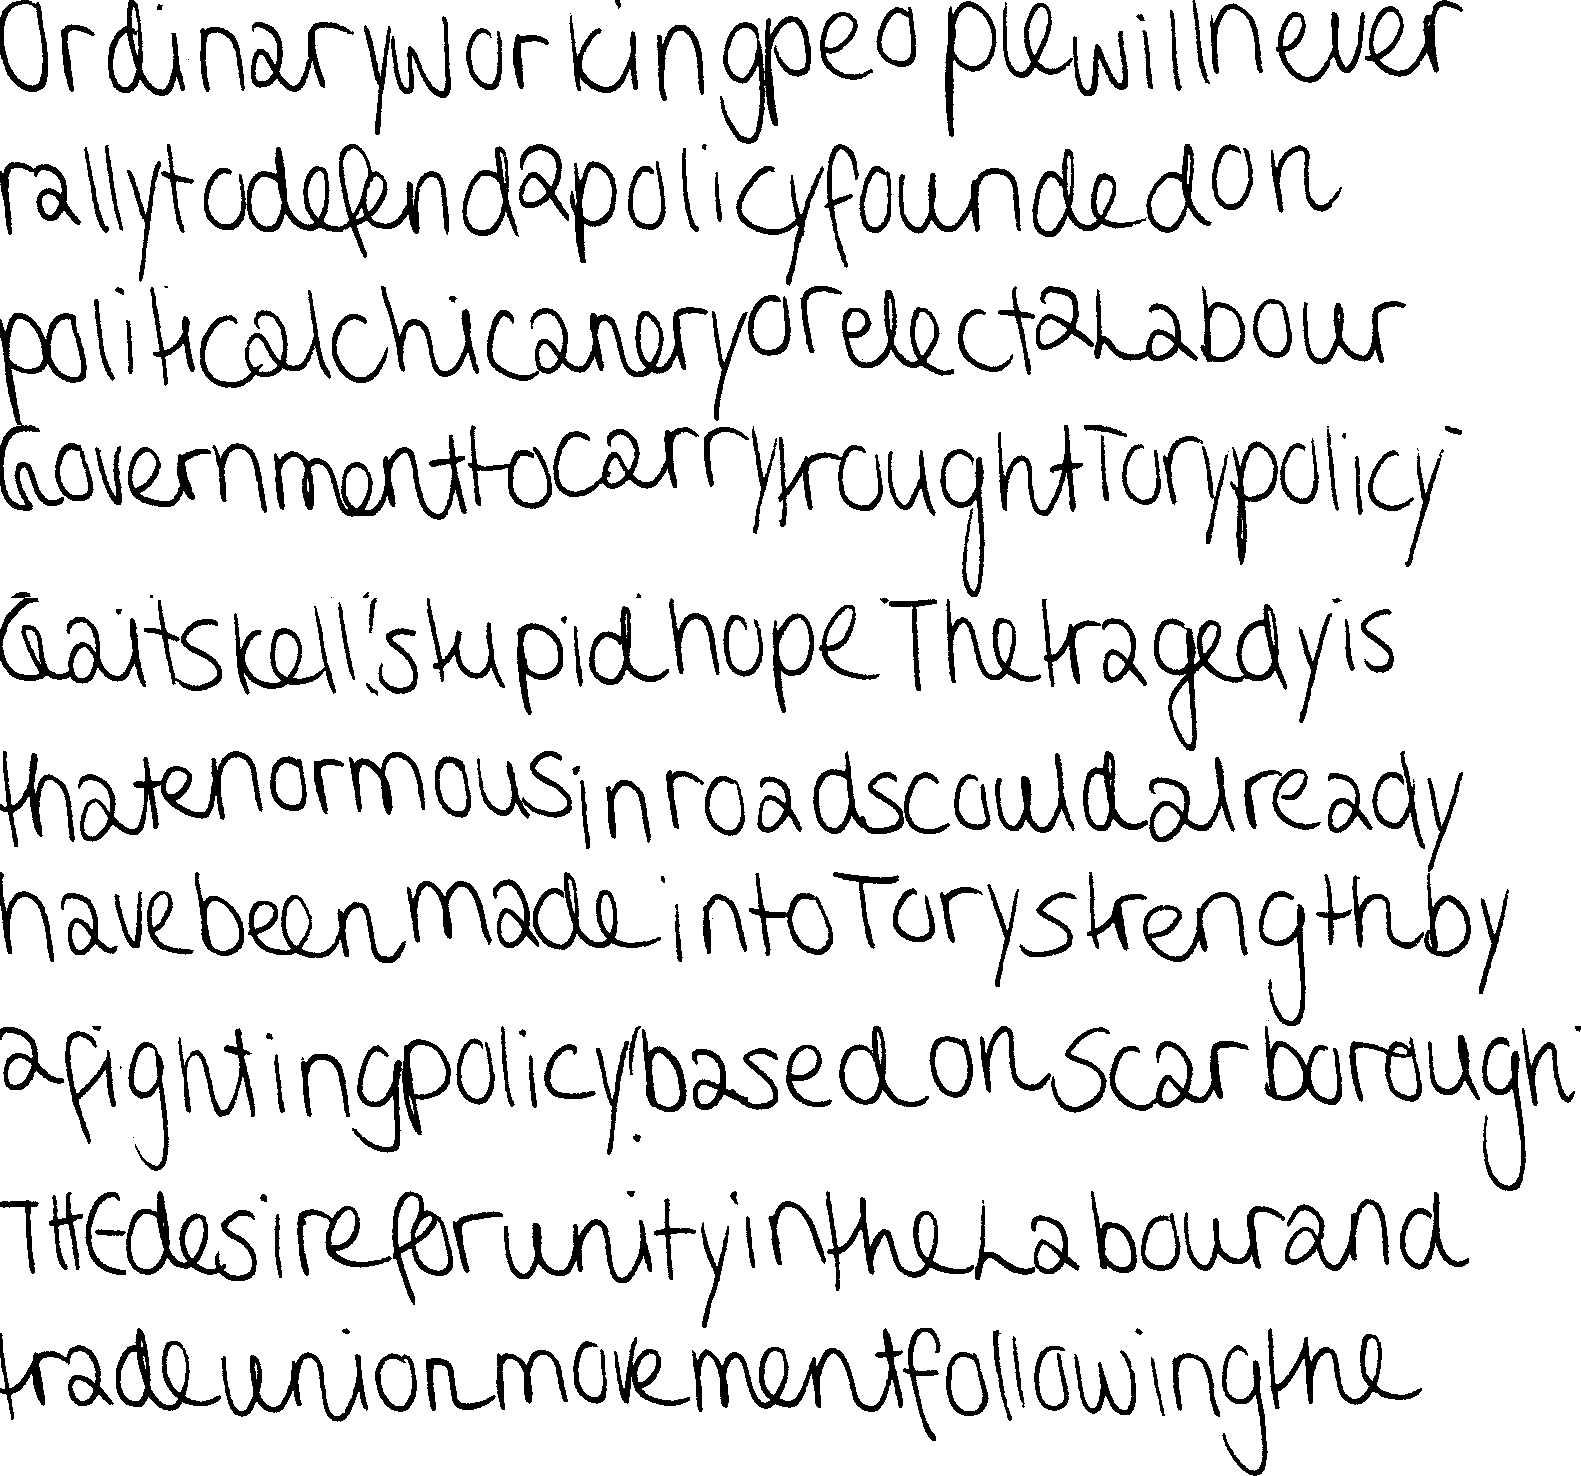 Ordinary working people will never
rally to defend a policy founded on
political chicanery or elect a Labour
Government to carry trought Tory policy -
Gaitskell's stupid hope The tragedy is
that enormous inroads could already
have been made into Tory strength by
a fighting policy! based on Scarborough.
THE desire for unity in the Labour and
trade union movement following the